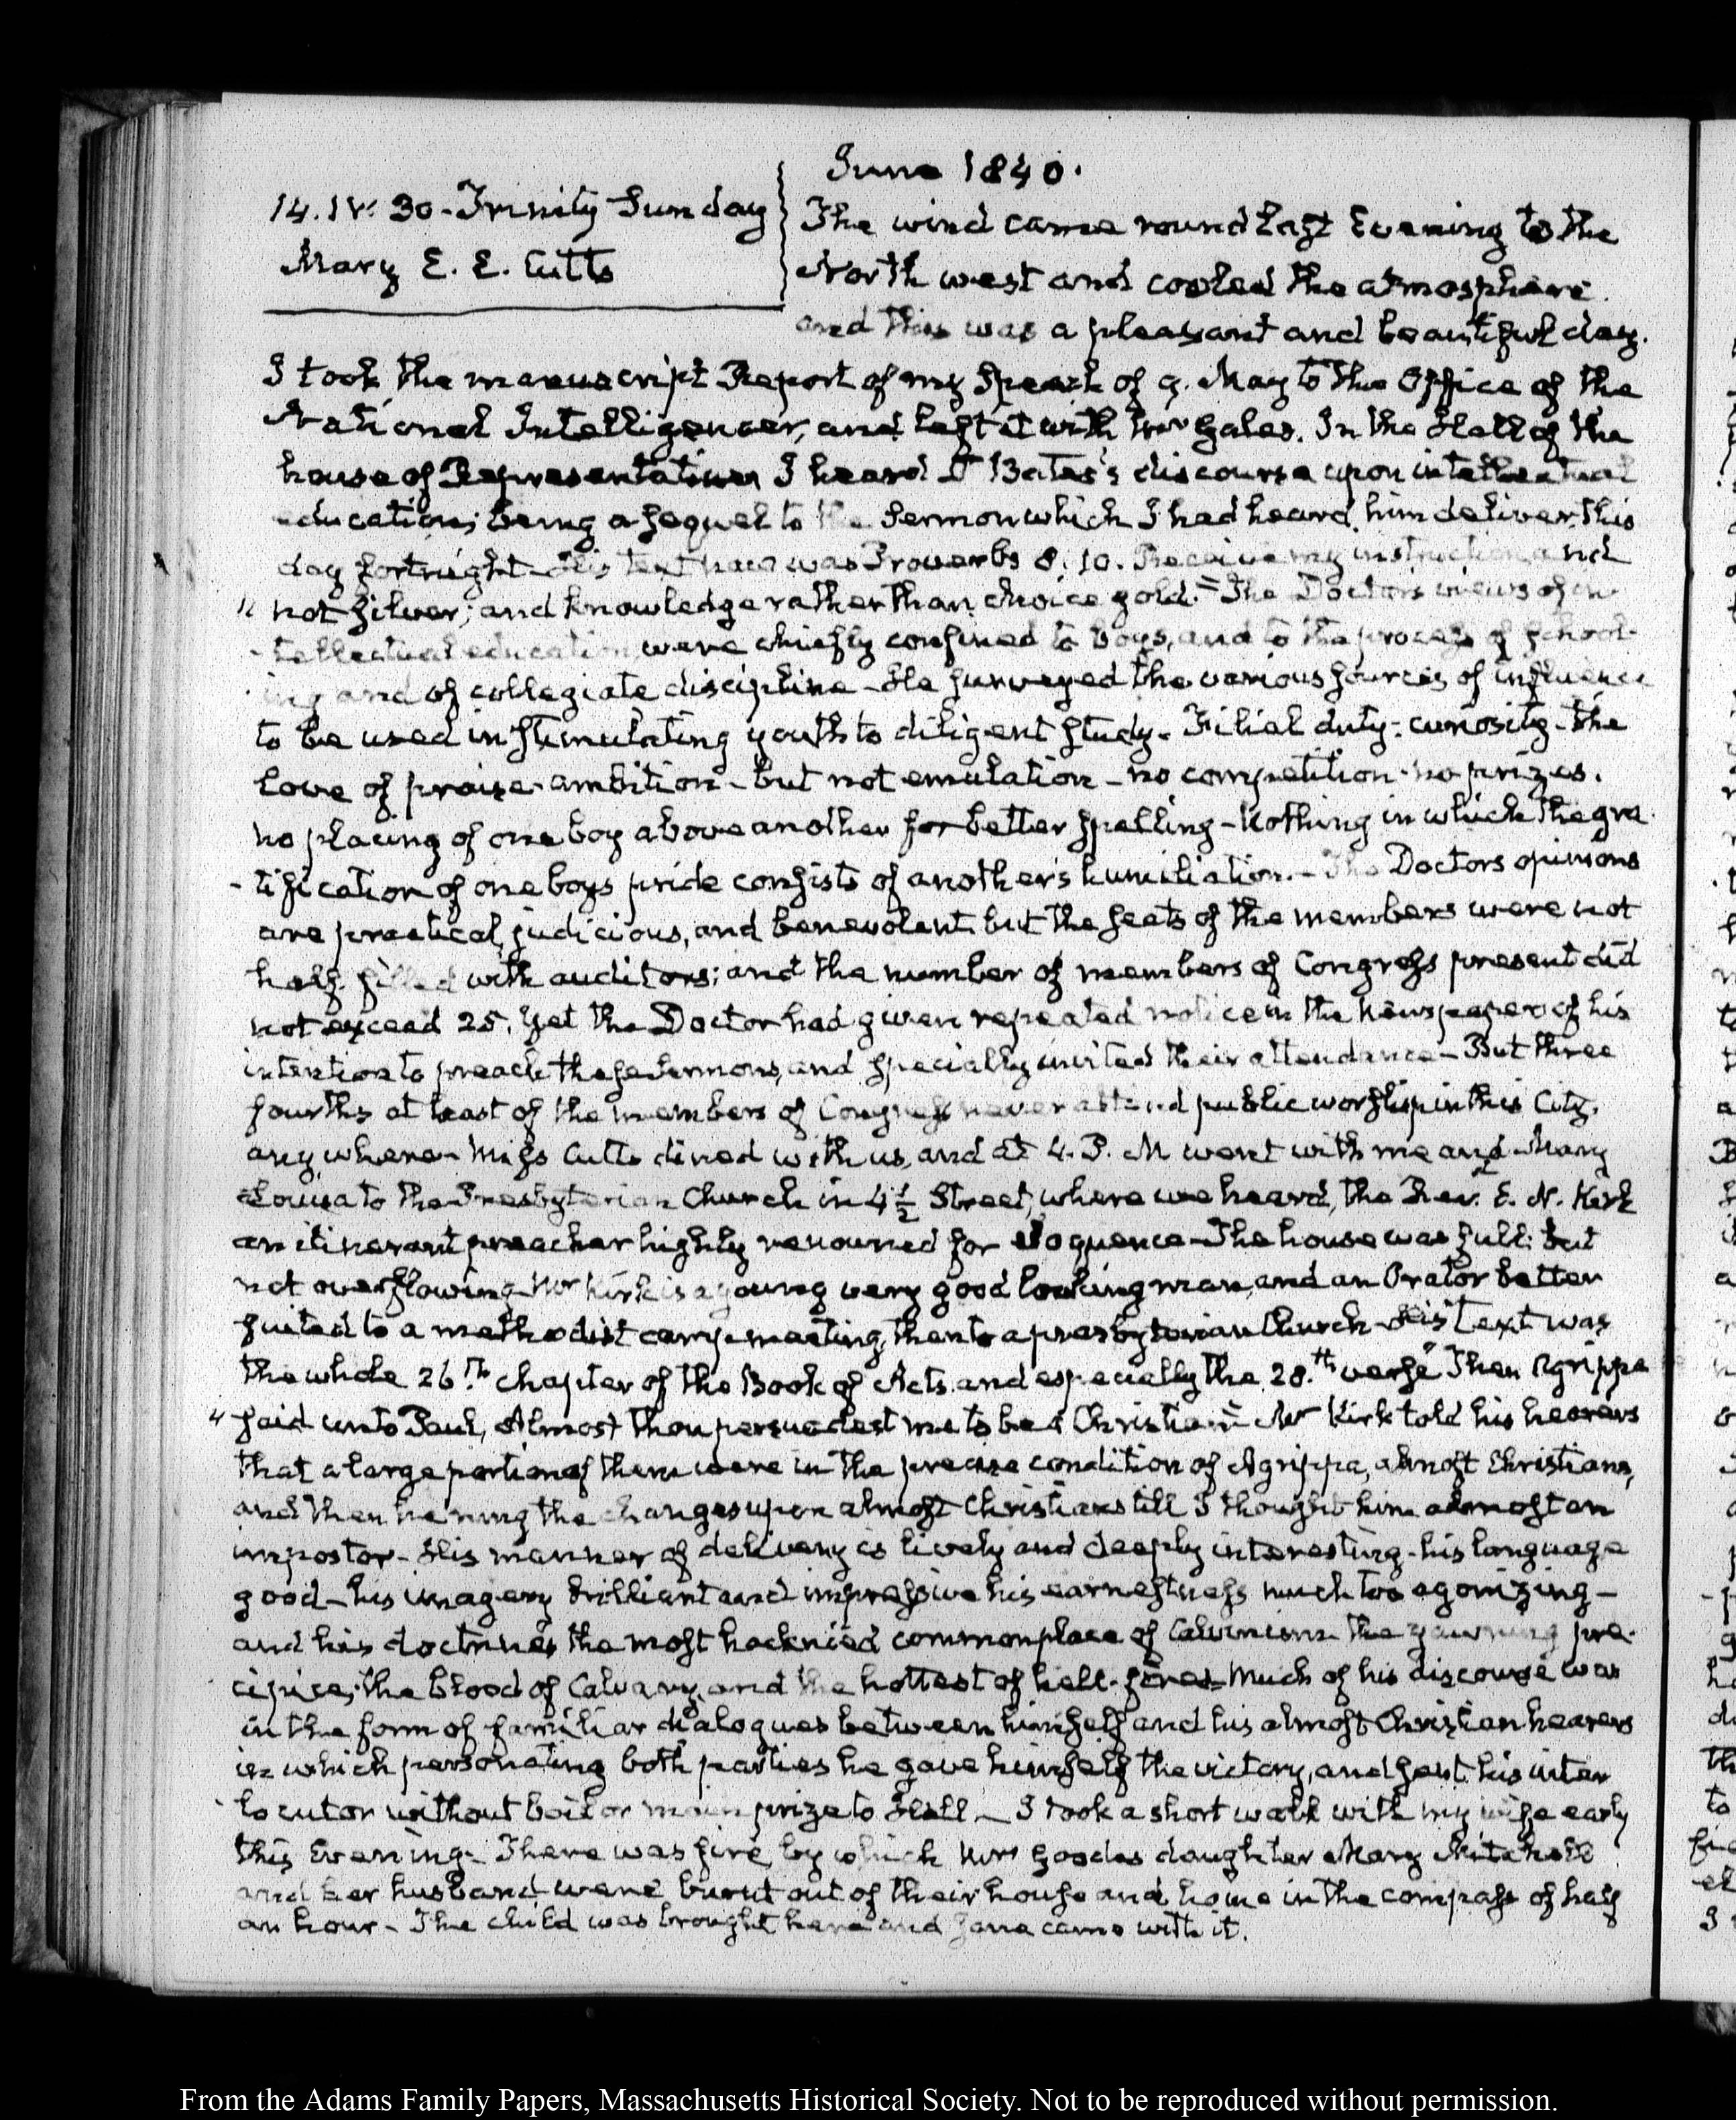 June 1840.
14. IV: 30. Trinity Sunday
Mary E. E. Cutts
The wind came round last Evening to the
North west and cooled the atmosphere
and this was a pleasant and beautiful day.
I took the manuscript Report of my Speech of 9. May to the Office of the
National Intelligencer, and left it with Mr Gales. In the Hall of the
house of Representatives I heard Dr Bates's discourse upon intellectual
education; being a sequel to the Sermon which I had heard him deliver this
day fortnight— His text was Proverbs 8. 10. Receive my instruction and
" not silver; and knowledge rather than choice gold." The Doctor's views of in-
-tellectual education were chiefly confined to boys, and to the process of school-
ing and of collegiate discipline— He surveyed the various sources of influence
to be used in stimulating youth to diligent study— Filial duty— curiosity— the
love of praise— ambition— but not emulation— no competition— no prizes.
no placing of one boy above another for better spelling— Nothing in which the gra-
-tification of one boys pride consists of another's humiliation.— The Doctors opinions
are practical, judicious, and benevolent, but the seats of the members were not
half filled with auditors; and the number of members of Congress present did
not exceed 25. Yet the Doctor had given repeated notice in the Newspapers of his
intention to preach these Sermons, and specially invited their attendance— But three
fourths at least of the members of Congress never attend public worship in this City.
any where— Miss Cutts dined with us, and at 4. P. M went with me and Mary
Louisa to the Presbyterian Church in 4½ Street, where we heard, the Rev. E. N. Kirk
an itinerant preacher highly renowned for eloquence— The house was full: but
not overflowing— Mr Kirk is a young very good looking man, and an Orator better
suited to a methodist camp-meeting, than to a presbyterian Church— His Text was
the whole 26.th chapter of the Book of Acts and especially the 28.th verse "Then Agrippa
" said unto Paul, Almost thou persuadest me to be a Christian"— Mr Kirk told his hearers
that a large portion of them were in the precise condition of Agrippa, almost Christians,
and then he rung the changes upon almost Christians till I thought him almost an
impostor— His manner of delivery is lively and deeply interesting— his language
good— his imagery brilliant and impressive his earnestness much too agonizing—
and his doctrines the most hacknied commonplace of Calvinism— The yawning pre-
cipice; the blood of Calvary, and the hottest of hell-fires— Much of his discourse was
in the form of familiar dialogues between himself and his almost Christian hearers
in which personating both parties he gave himself the victory, and sent his inter
-locutor without bail or main prize to Hell.— I took a short walk with my wife early
this Evening— There was fire, by which Mrs Goods daughter Mary Mitchell
and her husband were burnt out of their house and home in the compass of half
an hour— The child was brought here and Jane came with it.
From the Adams Family Papers, Massachusetts Historical Society. Not to be reproduced without permission.